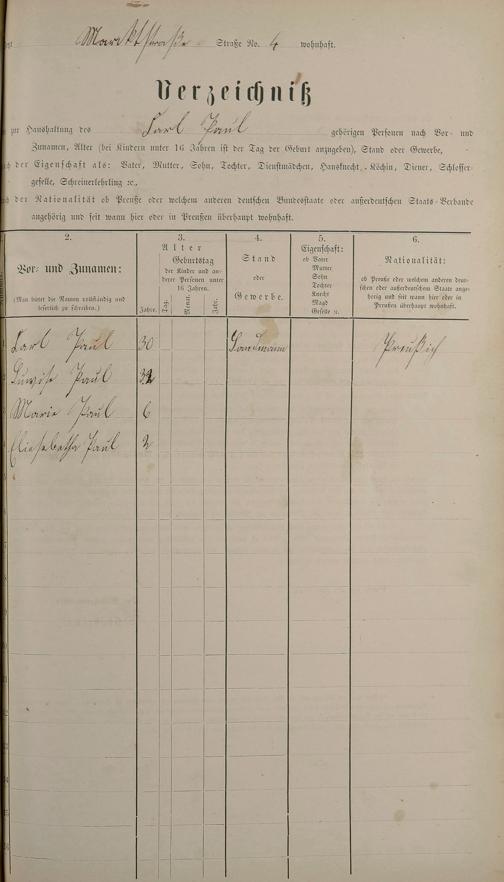 Marcktstraße Straße No. 4 wohnhaft.
Verzeichniß
zur Haushaltung des Carl Paul gehörigen Personen nach Vor- und
Zunamen, Alter (bei Kindern unter 16 Jahren ist der Tag der Geburt anzugeben), Stand oder Gewerbe,
der Eigenschaft als: Vater, Mutter, Sohn, Tochter, Dienstmädchen, Hausknecht, Köchin, Diener, Schlosser-
geselle, Schreinerlehrling ꝛc.,
der Nationalität ob Preuße oder welchem anderen deutschen Bundesstaate oder außerdeutschen Staats-Verbande
angehörig und seit wann hier oder in Preußen überhaupt wohnhaft.
2.
Vor- und Zunamen:
(Man bittet die Namen vollständig und
leserlich zu schreiben.)
3.
Alter
Geburtstag
der Kinder und an-
derer Personen unter
16 Jahren.
Jahre. Tag. Monat. Jahr.
4.
Stand
oder
Gewerbe.
5.
Eigenschaft:
ob Vater
Mutter
Sohn
Tochter
Knecht
Magd
Geselle ꝛc.
6.
Nationalität:
ob Preuße oder welchem anderen deut-
schen oder außerdeutschen Staat ange-
hörig und seit wann hier oder in
Preußen überhaupt wohnhaft.
Carl Paul 30 Landmann Preußisch
Luwise Paul 32
Marie Paul 6
Eliesabetha Paul 2